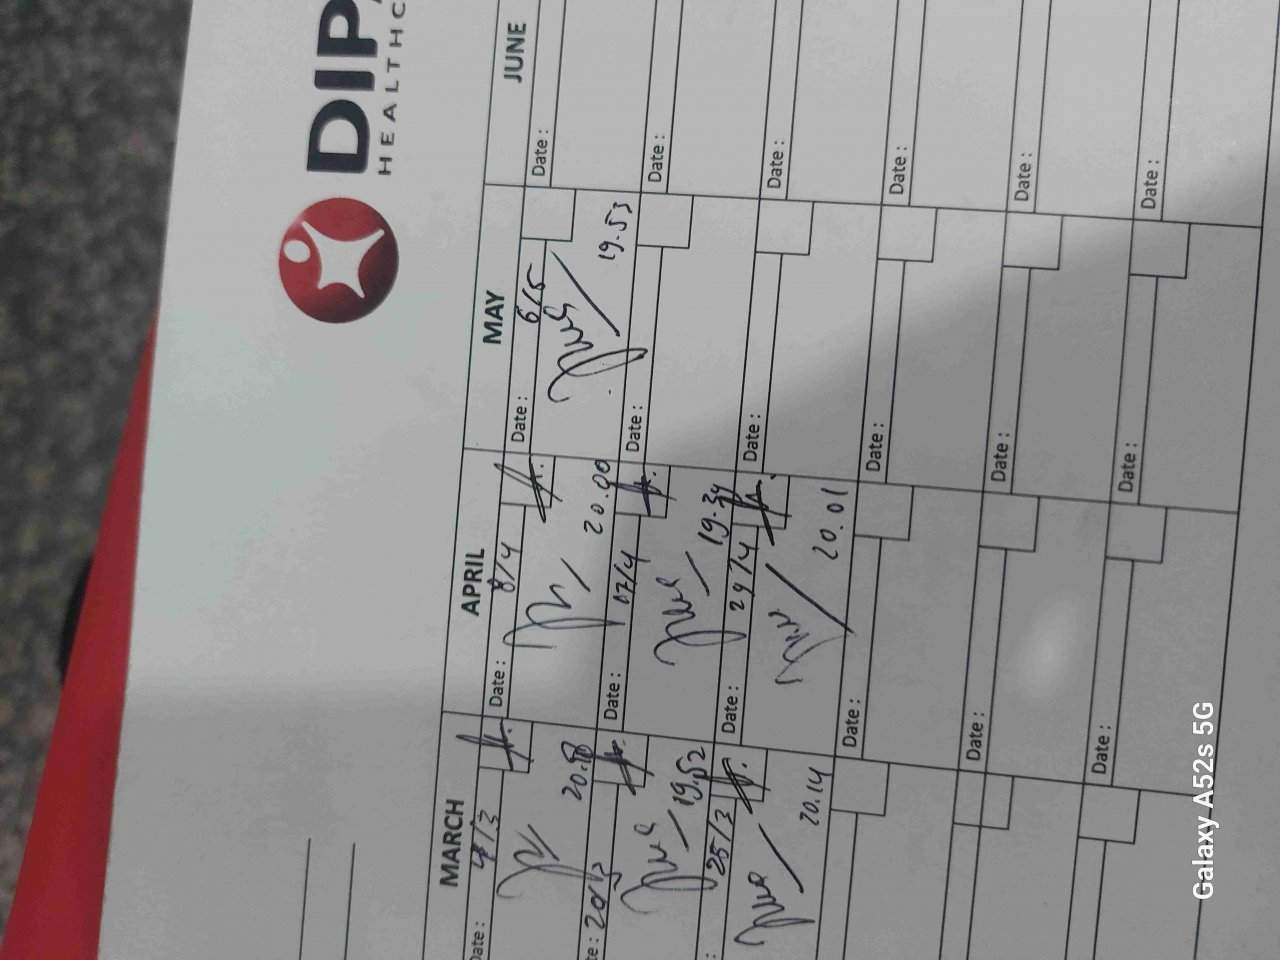 DIP
HEALTHC
MARCH APRIL MAY JUNE
Date: 8/4 Date: 6/5 Date:
20.00 19.53
20/3 Date: 17/4 Date: Date:
19.52 19.34
25/3 Date: 29/4 Date: Date:
20.14 20.01
Date: Date: Date:
Date: Date: Date:
Date: Date: Date:
Galaxy A52s 5G